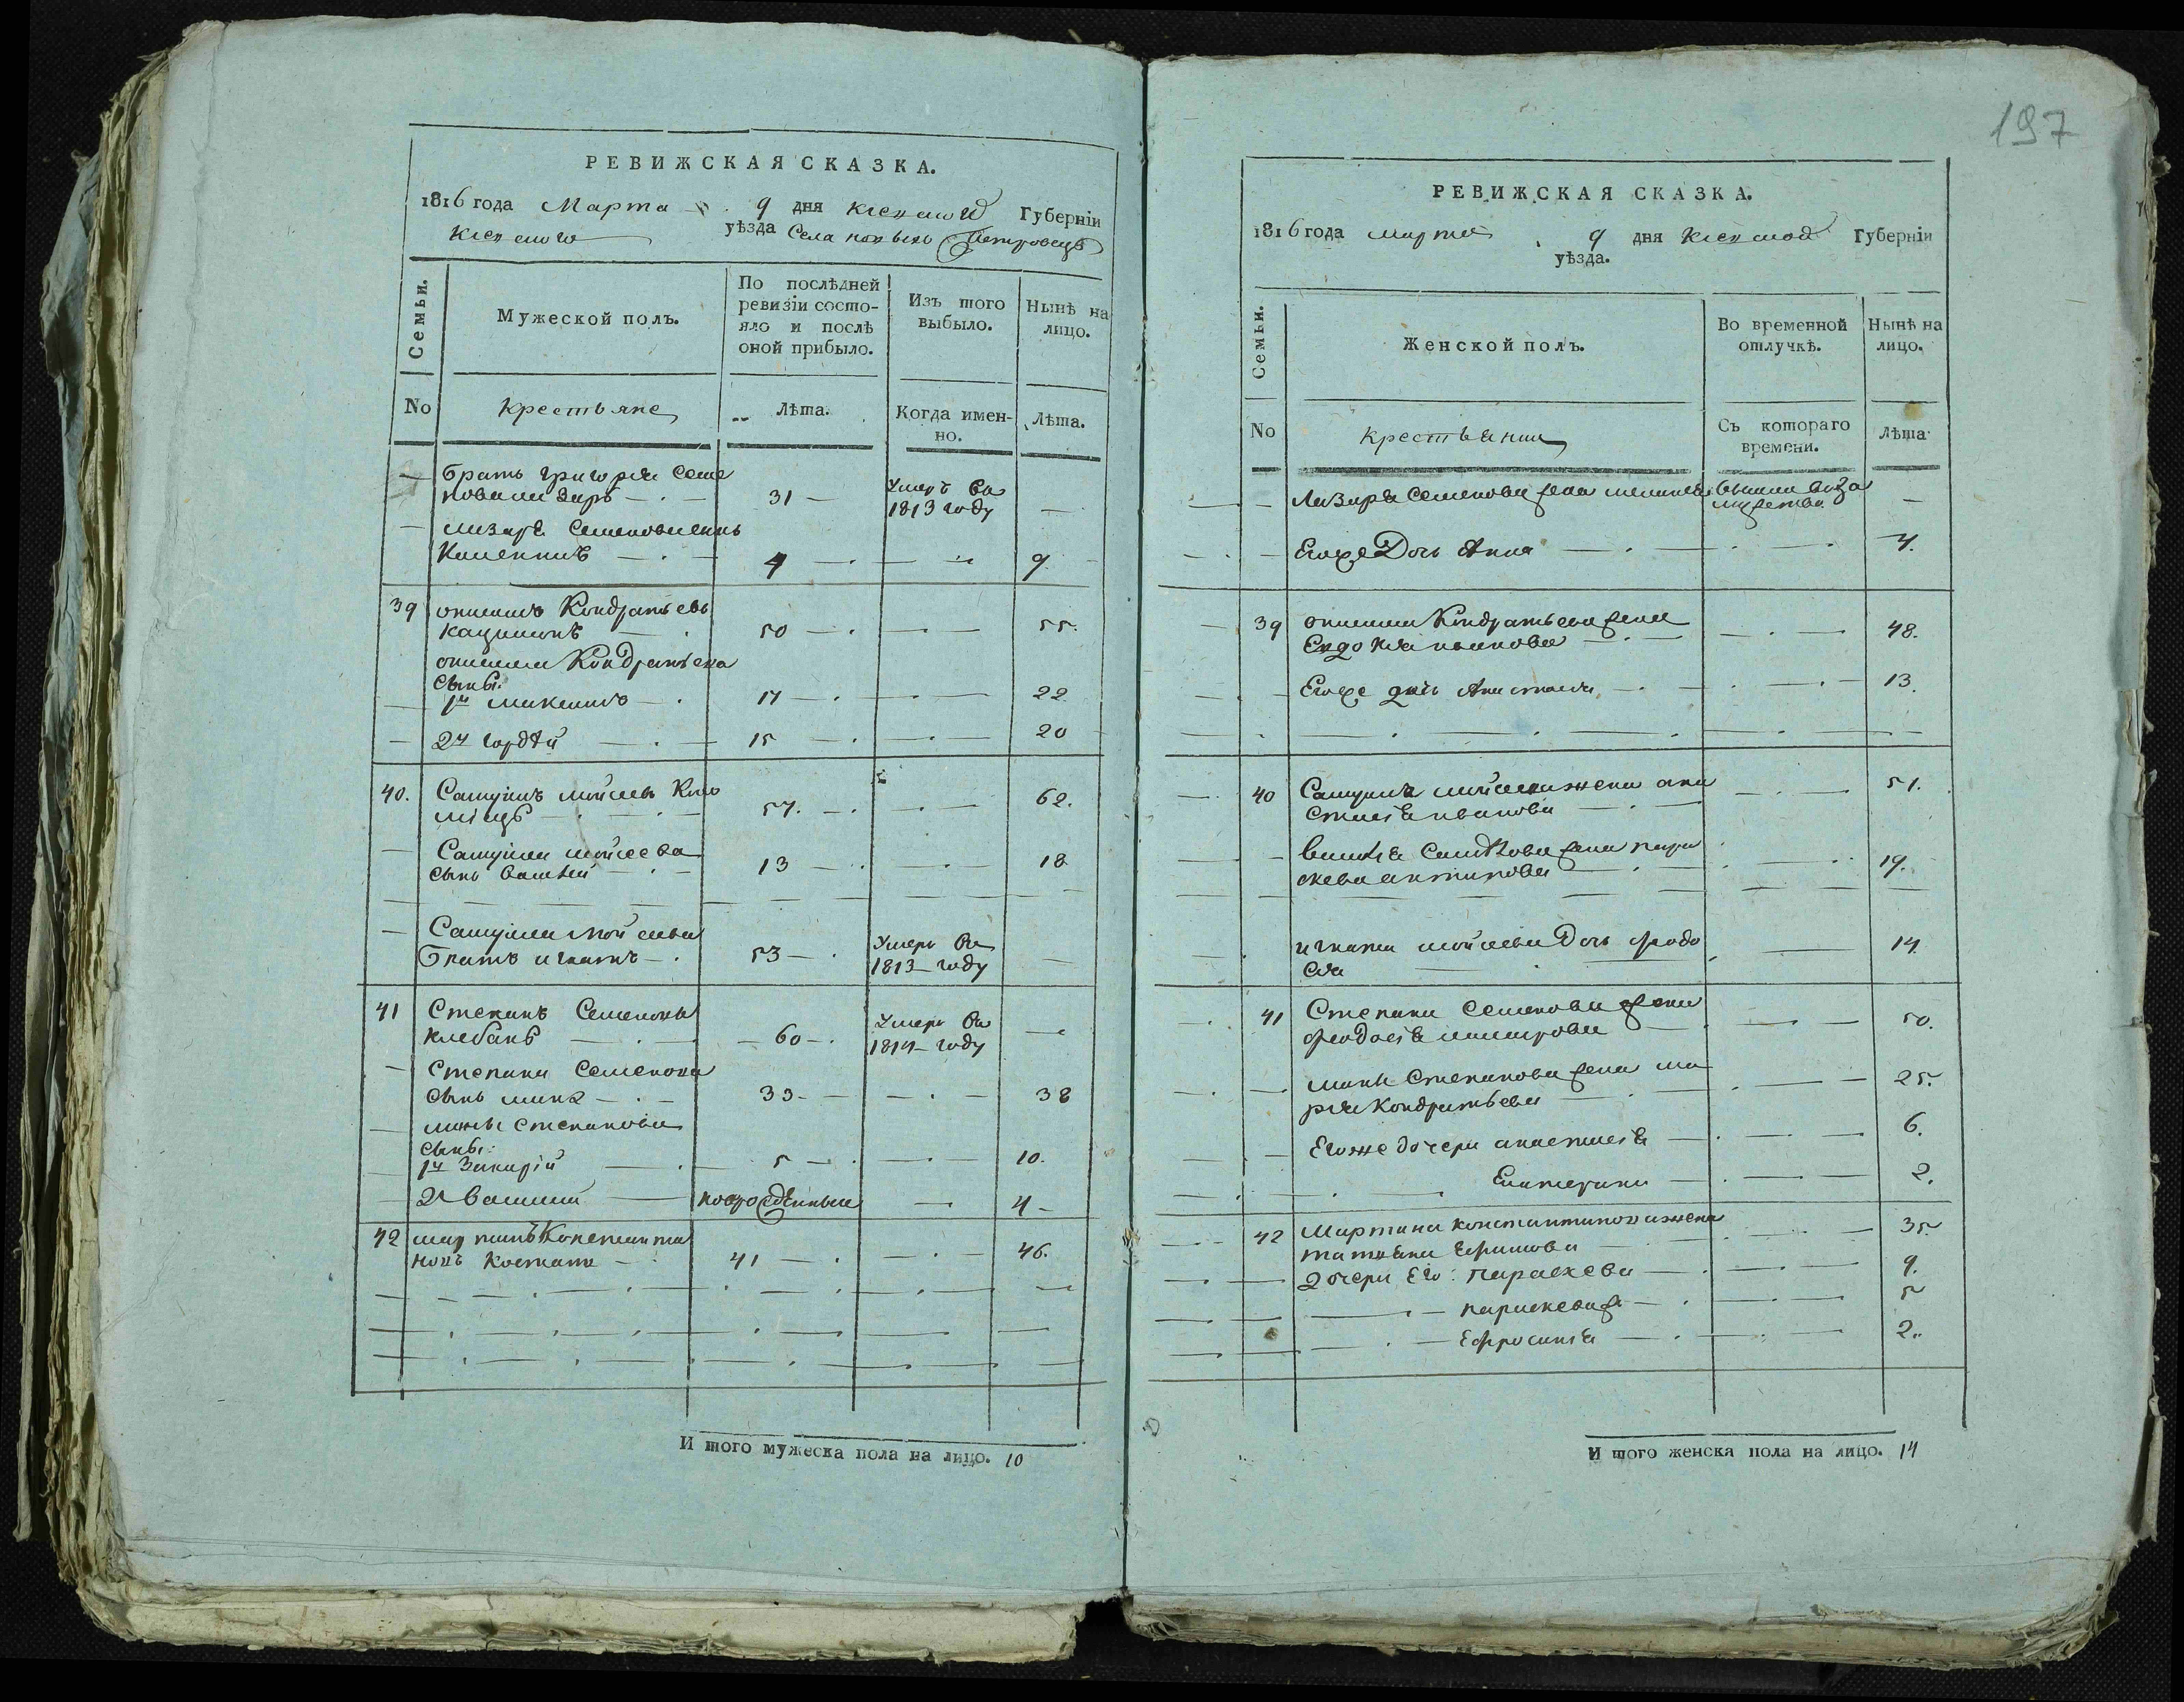 197
РЕВИЖСКАЯ СКАЗКА.
1816 года Марта 9 дня Кіевской Губерніи
Кіевского уѣзда Села Петровецъ
Семьи.
Мужеской полъ.
По послѣдней
ревизіи состо-
яло и послѣ
оной прибыло.
Изъ того
выбыло.
Нынѣ на
лицо.
No
Крестьяне
Лѣта.
Когда имен-
но.
Лѣта.
— Братъ Григорія Семе
нова Лазарь 31 Умеръ Въ
1813 году —
— Лазаря Семенова сынъ
9
39 Кондратьевъ
50 55.
Кондратьева
Сыны:
1й Максимъ 17 22
2й Гордѣй 15 20
40. Самуилъ Мойсеевъ Коло
міецъ 57. 62.
— Самуила Мойсеева
Сынъ Василій 13 18
— Самуила Мойсеева
Братъ Игнатъ 53 Умеръ Въ
1813 году —
41 Степанъ Семеновъ
Клебанъ 60 Умеръ Въ
1814 году —
— Степана Семенова
Сынъ Мина 33 38
— Мины Степанова
Сыны:
1й Захарій 5 10.
2й Василий новорожденные 4
42 Мартинъ Константи
новъ 41 46.
И того мужеска пола на лицо. 10
РЕВИЖСКАЯ СКАЗКА.
1816 года Марта 9 дня Кіевской Губерніи
уѣзда.
Семьи.
Женской полъ.
Во временной
отлучкѣ.
Нынѣ на
лицо.
No
Крестьянки
Съ котораго
времени.
Лѣта
Лазаря Семенова жена вышла въ за
мужество —
Егоже Дочь Анна 7.
39 Кондратьева жена
Евдокія 48.
Егоже дочь Анастасія 13.
40 Самуила Мойсеева жена Ана
стасія Иванова 51.
Василія Самуилова жена Пара
скева Антипова 19.
Игната Мойсеева Дочь Феодо
сія 14.
41 Степана Семенова жена
Феодосія 50.
Мины Степанова жена Ма
рія Кондратьева 25.
Егоже дочери Анастасія 6.
Екатерина 2.
42 Мартина Константинова жена
Татьяна Ефимова 35
дочери Его: Параскева 9.
Параскева ж 5
Ефросинія 2.
И того женска пола на лицо. 14